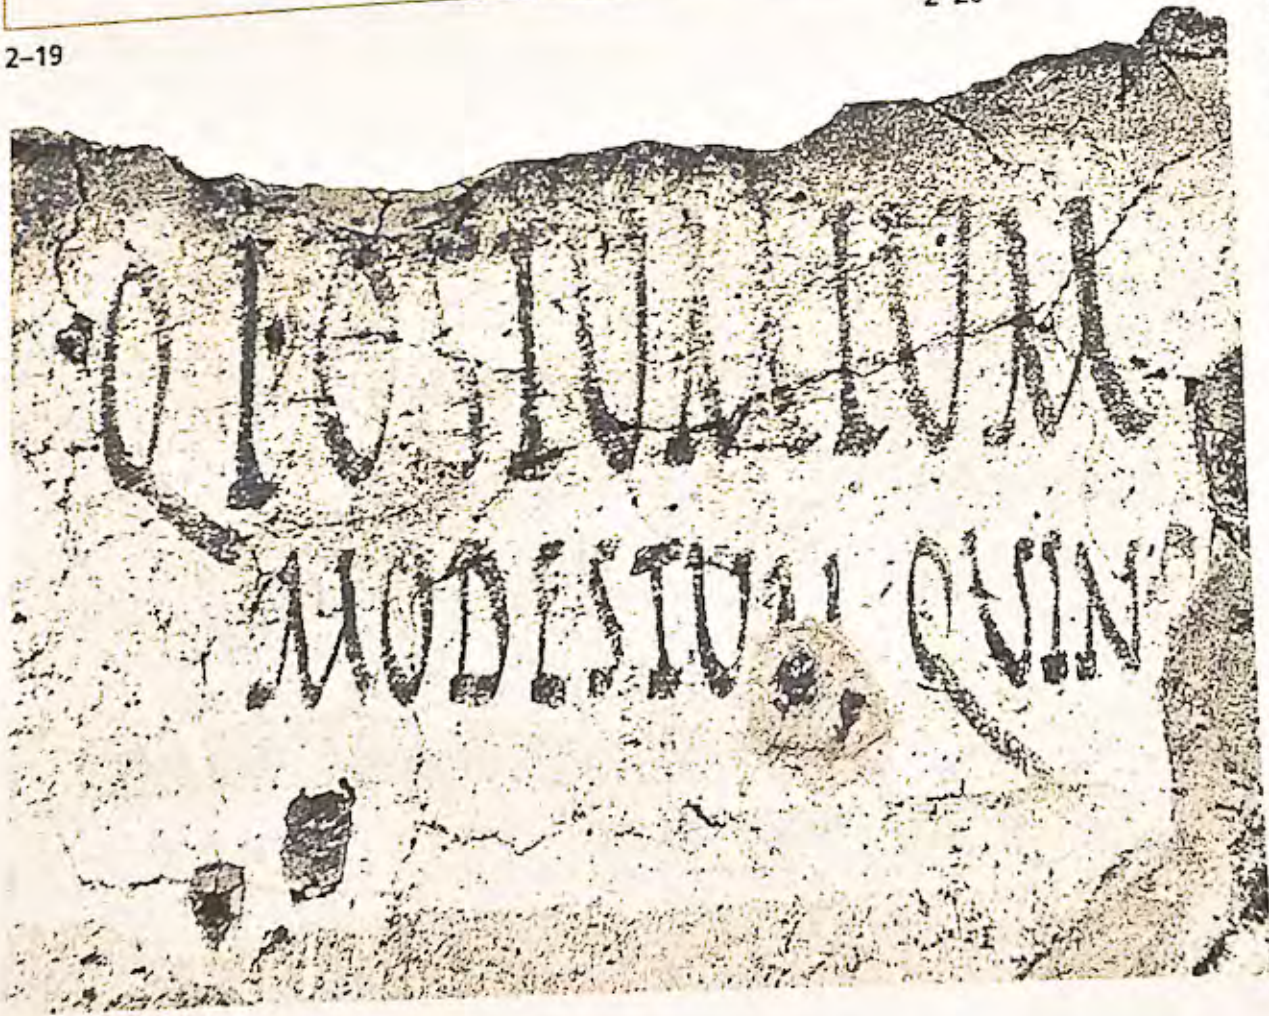 2–19
Q POSTUMIUM
MODESTUM QUIN